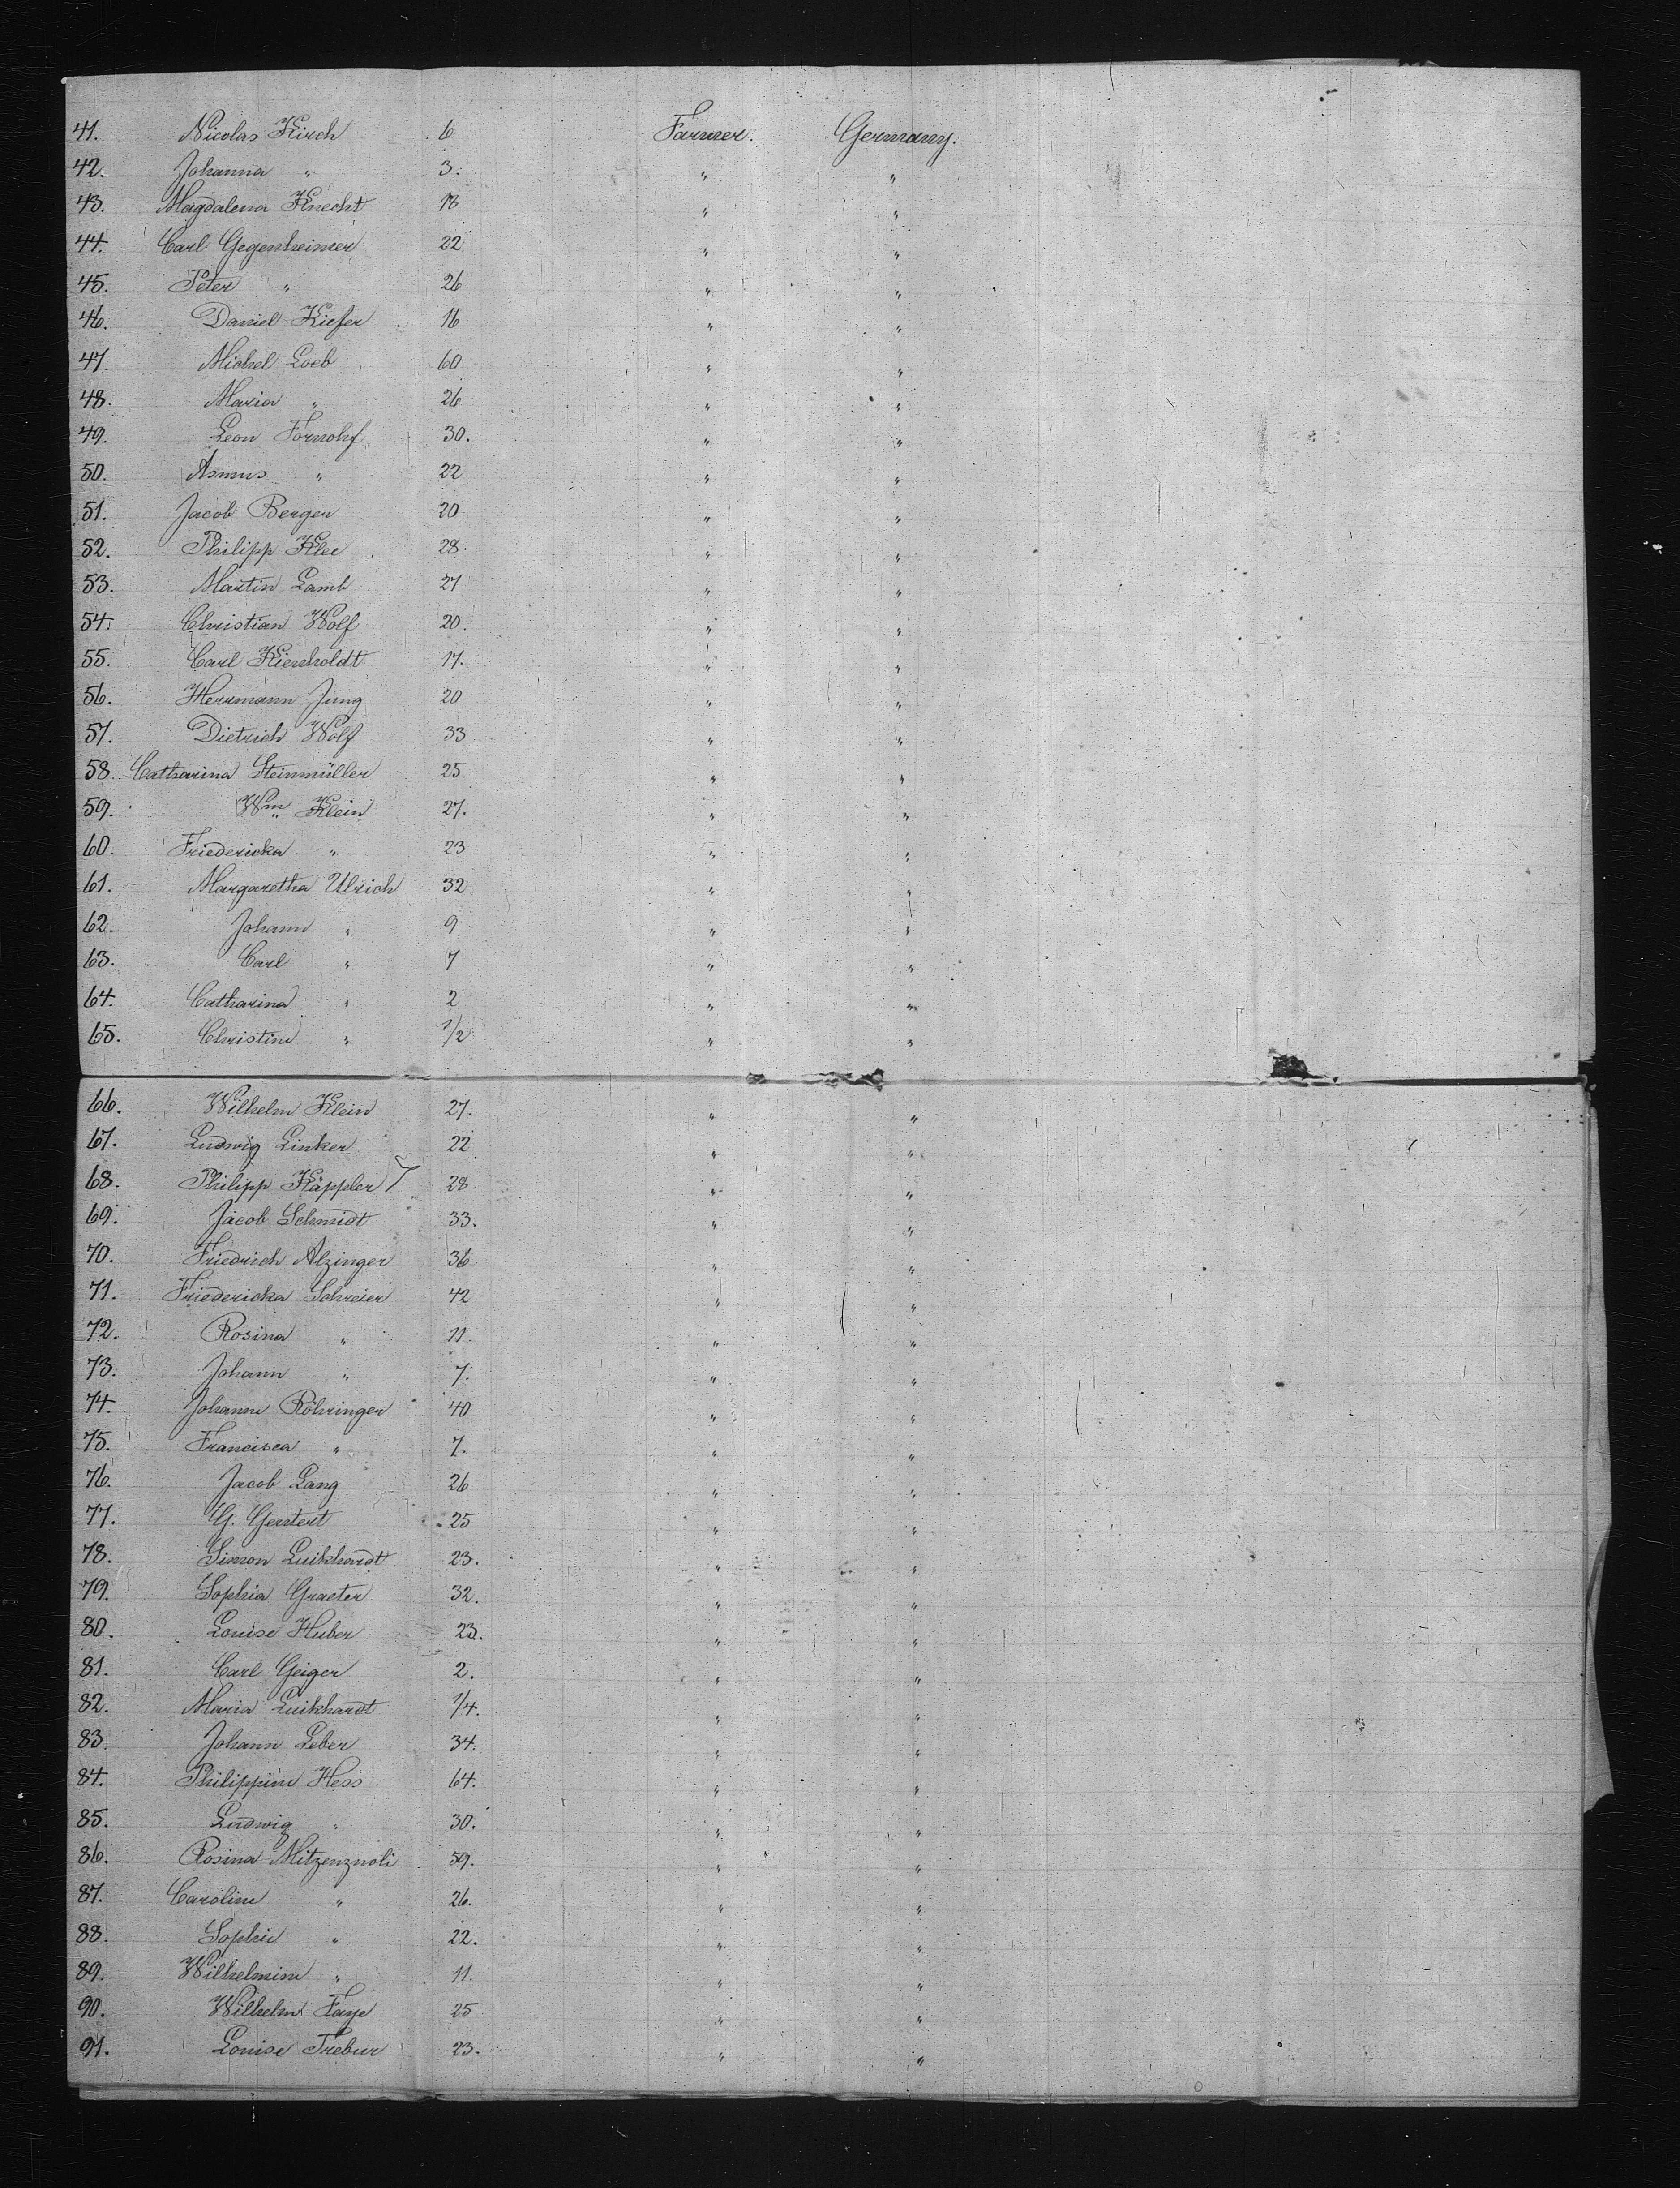 41. Nicolas Kirch 6 Farmer. Germany.
42. Johanna " 3. " "
43. Magdalena Knecht 18 " "
44. Carl Gegenheimer 22 " "
45. Peter " 26 " "
46. Daniel Kiefer 16 " "
47. Michel Loeb 60 " "
48. Maria " 26 " "
49. Leon 30. " "
50. Asmus " 22 " "
51. Jacob Berger 20 " "
52. Philipp Klee 28. " "
53. Martin Lamb 27 " "
54. Christian Wolf 20. " "
55. Carl Kienholdt 17. " "
56. Herrmann Jung 20 " "
57. Dietrich Wolf 33 " "
58. Catharina Steinmüller 25 " "
59. Wm. Klein 27. " "
60. Friedericka " 23 " "
61. Margaretha Ulrich 32 " "
62. Johann " 9 " "
63. Carl " 7 " "
64. Catharina " 2 " "
65. Christine " 1/2 " "
66. Wilhelm Klein 27. " "
67. Ludwig Linker 22 " "
68. Philipp Käppler 28 " "
69. Jacob Schmidt 33. " "
70. Friedrich Alzinger 36 " "
71. Friedericka Schreier 42 " "
72. Rosina " 11. " "
73. Johann " 7. " "
74. Johann Röhringer 40 " "
75. Francisca " 7. " "
76. Jacob Lang 26 " "
77. G. 25 " "
78. Simon Luikhardt 23. " "
79. Sophia Graeter 32. " "
80. Louise Huber 23. " "
81. Carl Geiger 2. " "
82. Maria Luikhardt 1/4. " "
83. Johann Leber 34. " "
84. Philippine Hess 64. " "
85. Ludwig " 30. " "
86. Rosina 59. " "
87. Caroline " 26. " "
88. Sophie " 22. " "
89. Wilhelmine " 11. " "
90. Wilhelm Faye 25 " "
91. Louise Trebur 23. " "